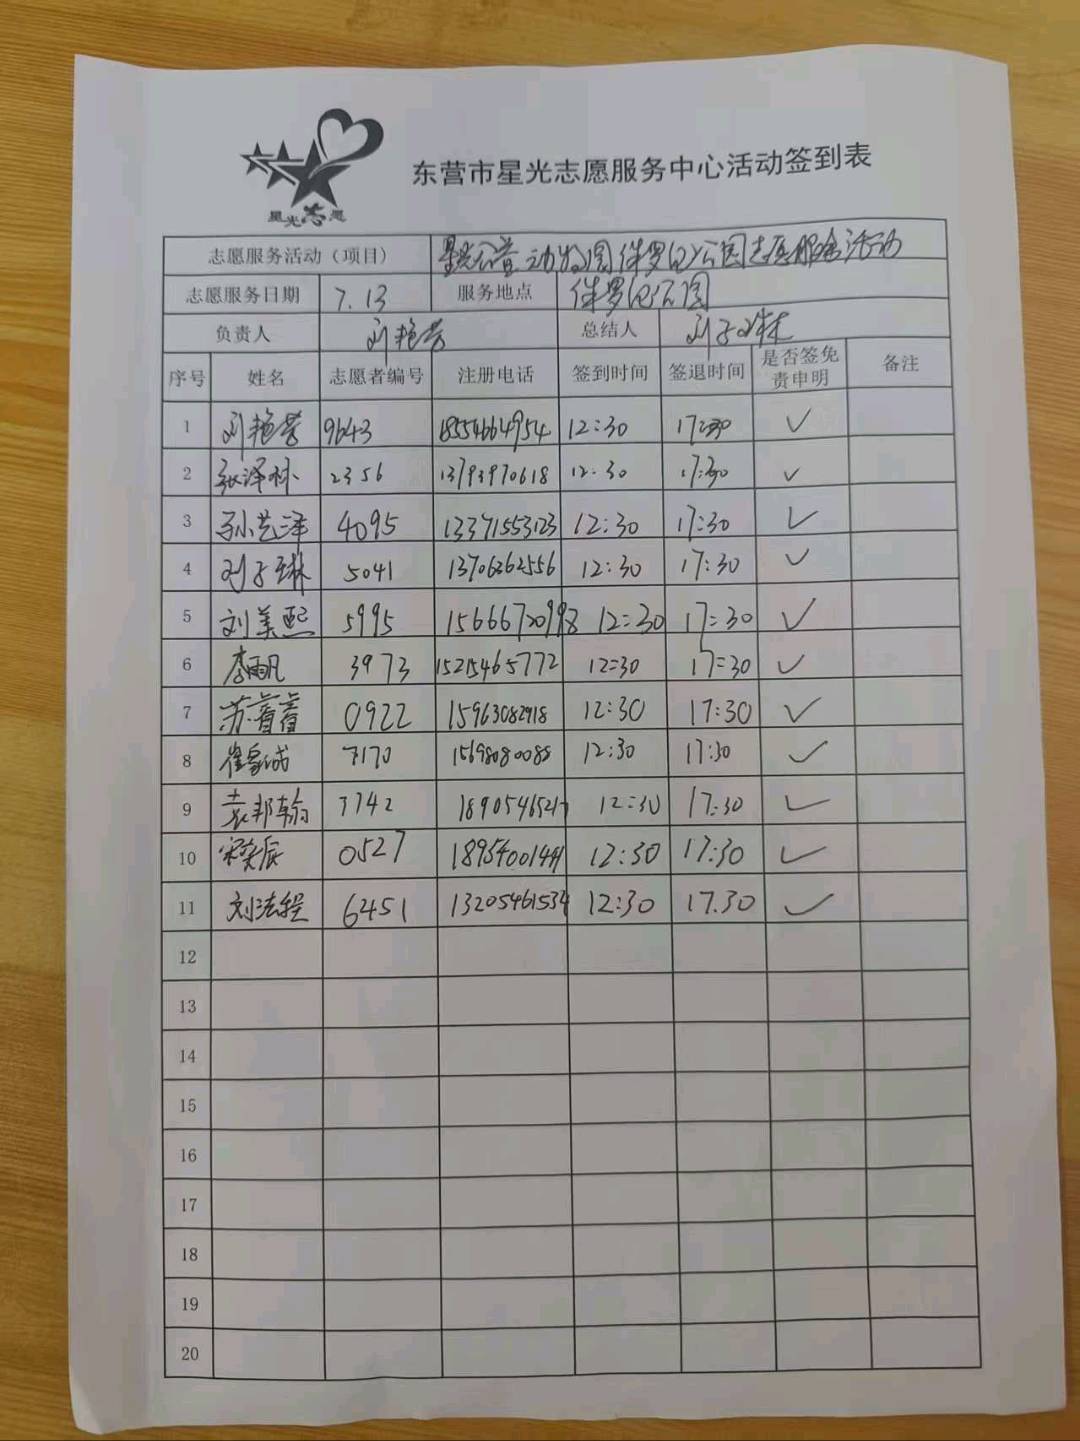 星光志愿
东营市星光志愿服务中心活动签到表
志愿服务活动（项目） 星光公益动物园侏罗纪公园志愿服务活动
志愿服务日期 7.13 服务地点 侏罗纪公园
负责人 刘艳芳 总结人 刘子琳
序号 姓名 志愿者编号 注册电话 签到时间 签退时间 是否签免责申明 备注
1 刘艳芳 9643 18554664954 12:30 17:30 ✓
2 张泽林 2356 13793970618 12:30 17:30 ✓
3 孙艺泽 4095 13371553123 12:30 17:30 ✓
4 刘子琳 5041 13706362556 12:30 17:30 ✓
5 刘美熙 5995 15666720998 12:30 17:30 ✓
6 李雨凡 3973 15215465772 12:30 17:30 ✓
7 苏蓄蓄 0922 15963082918 12:30 17:30 ✓
8 崔家诚 7170 15698080088 12:30 17:30 ✓
9 袁邦翰 7742 12:30 17:30 ✓
10 宋奕辰 0527 18954001441 12:30 17:30 ✓
11 刘法程 6451 13205461534 12:30 17.30 ✓
12
13
14
15
16
17
18
19
20